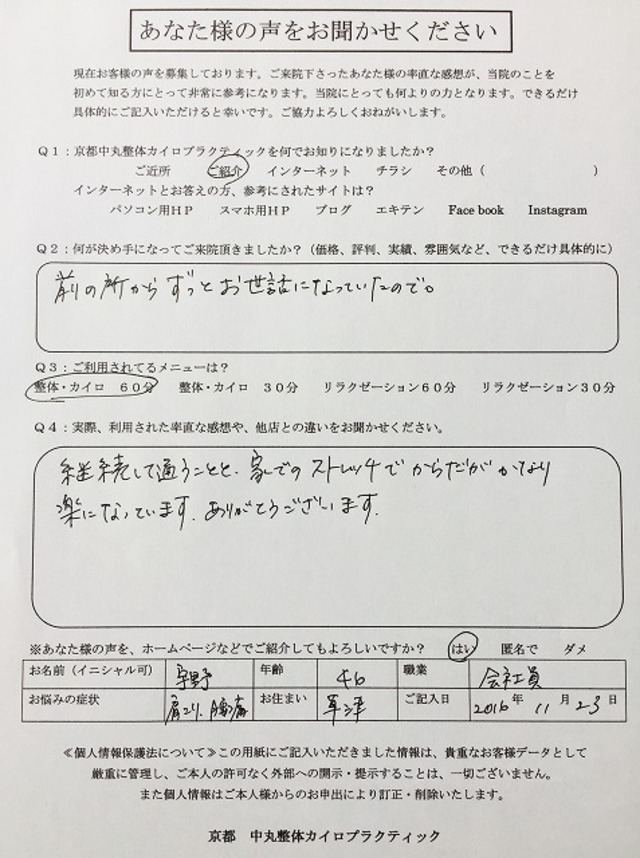 あなた様の声をお聞かせください
現在お客様の声を募集しております。ご来院下さったあなた様の率直な感想が、当院のことを
初めて知る方にとって非常に参考になります。当院にとっても何よりの力となります。できるだけ
具体的にご記入いただけると幸いです。ご協力よろしくおねがいします。
Q1:京都中丸整体カイロプラクティックを何でお知りになりましたか?
ご近所 ご紹介 インターネット チラシ その他( )
インターネットとお答えの方、参考にされたサイトは?
パソコン用HP スマホ用HP ブログ エキテン Face book Instagram
Q2:何が決め手になってご来院頂きましたか?(価格、評判、実績、雰囲気など、できるだけ具体的に)
前の所からずっとお世話になっていたので。
Q3:ご利用されてるメニューは?
整体・カイロ 60分 整体・カイロ 30分 リラクゼーション60分 リラクゼーション30分
Q4:実際、利用された率直な感想や、他店との違いをお聞かせください。
継続して通うことと、家でのストレッチでからだがかなり
楽になっています。ありがとうございます。
※あなた様の声を、ホームページなどでご紹介してもよろしいですか? はい 匿名で ダメ
お名前(イニシャル可) 宇野 年齢 46 職業 会社員
お悩みの症状 肩こり、腰痛 お住まい 草津 ご記入日 2016年 11月 23日
≪個人情報保護法について≫この用紙にご記入いただきました情報は、貴重なお客様データとして
厳重に管理し、ご本人の許可なく外部への開示・提示することは、一切ございません。
また個人情報はご本人様からのお申出により訂正・削除いたします。
京都 中丸整体カイロプラクティック